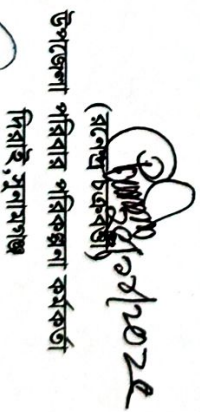 (রনেন্দ্র চক্রবর্তী)
উপজেলা পরিবার পরিকল্পনা কর্মকর্তা
দিরাই, সুনামগঞ্জ